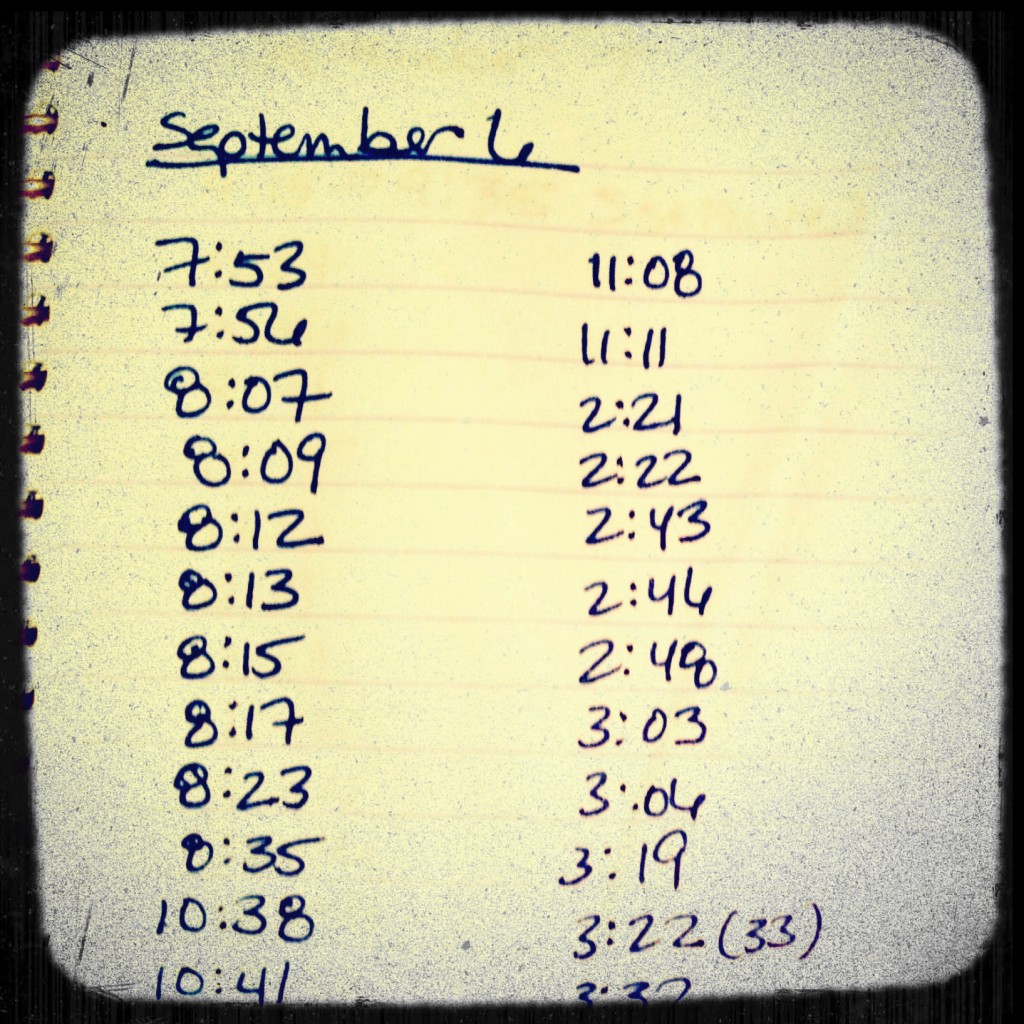 September 6
7:53
7:56
8:07
8:09
8:12
8:13
8:15
8:17
8:23
8:35
10:38
10:41
11:08
11:11
2:21
2:22
2:43
2:46
2:48
3:03
3:06
3:19
3:22 (33)